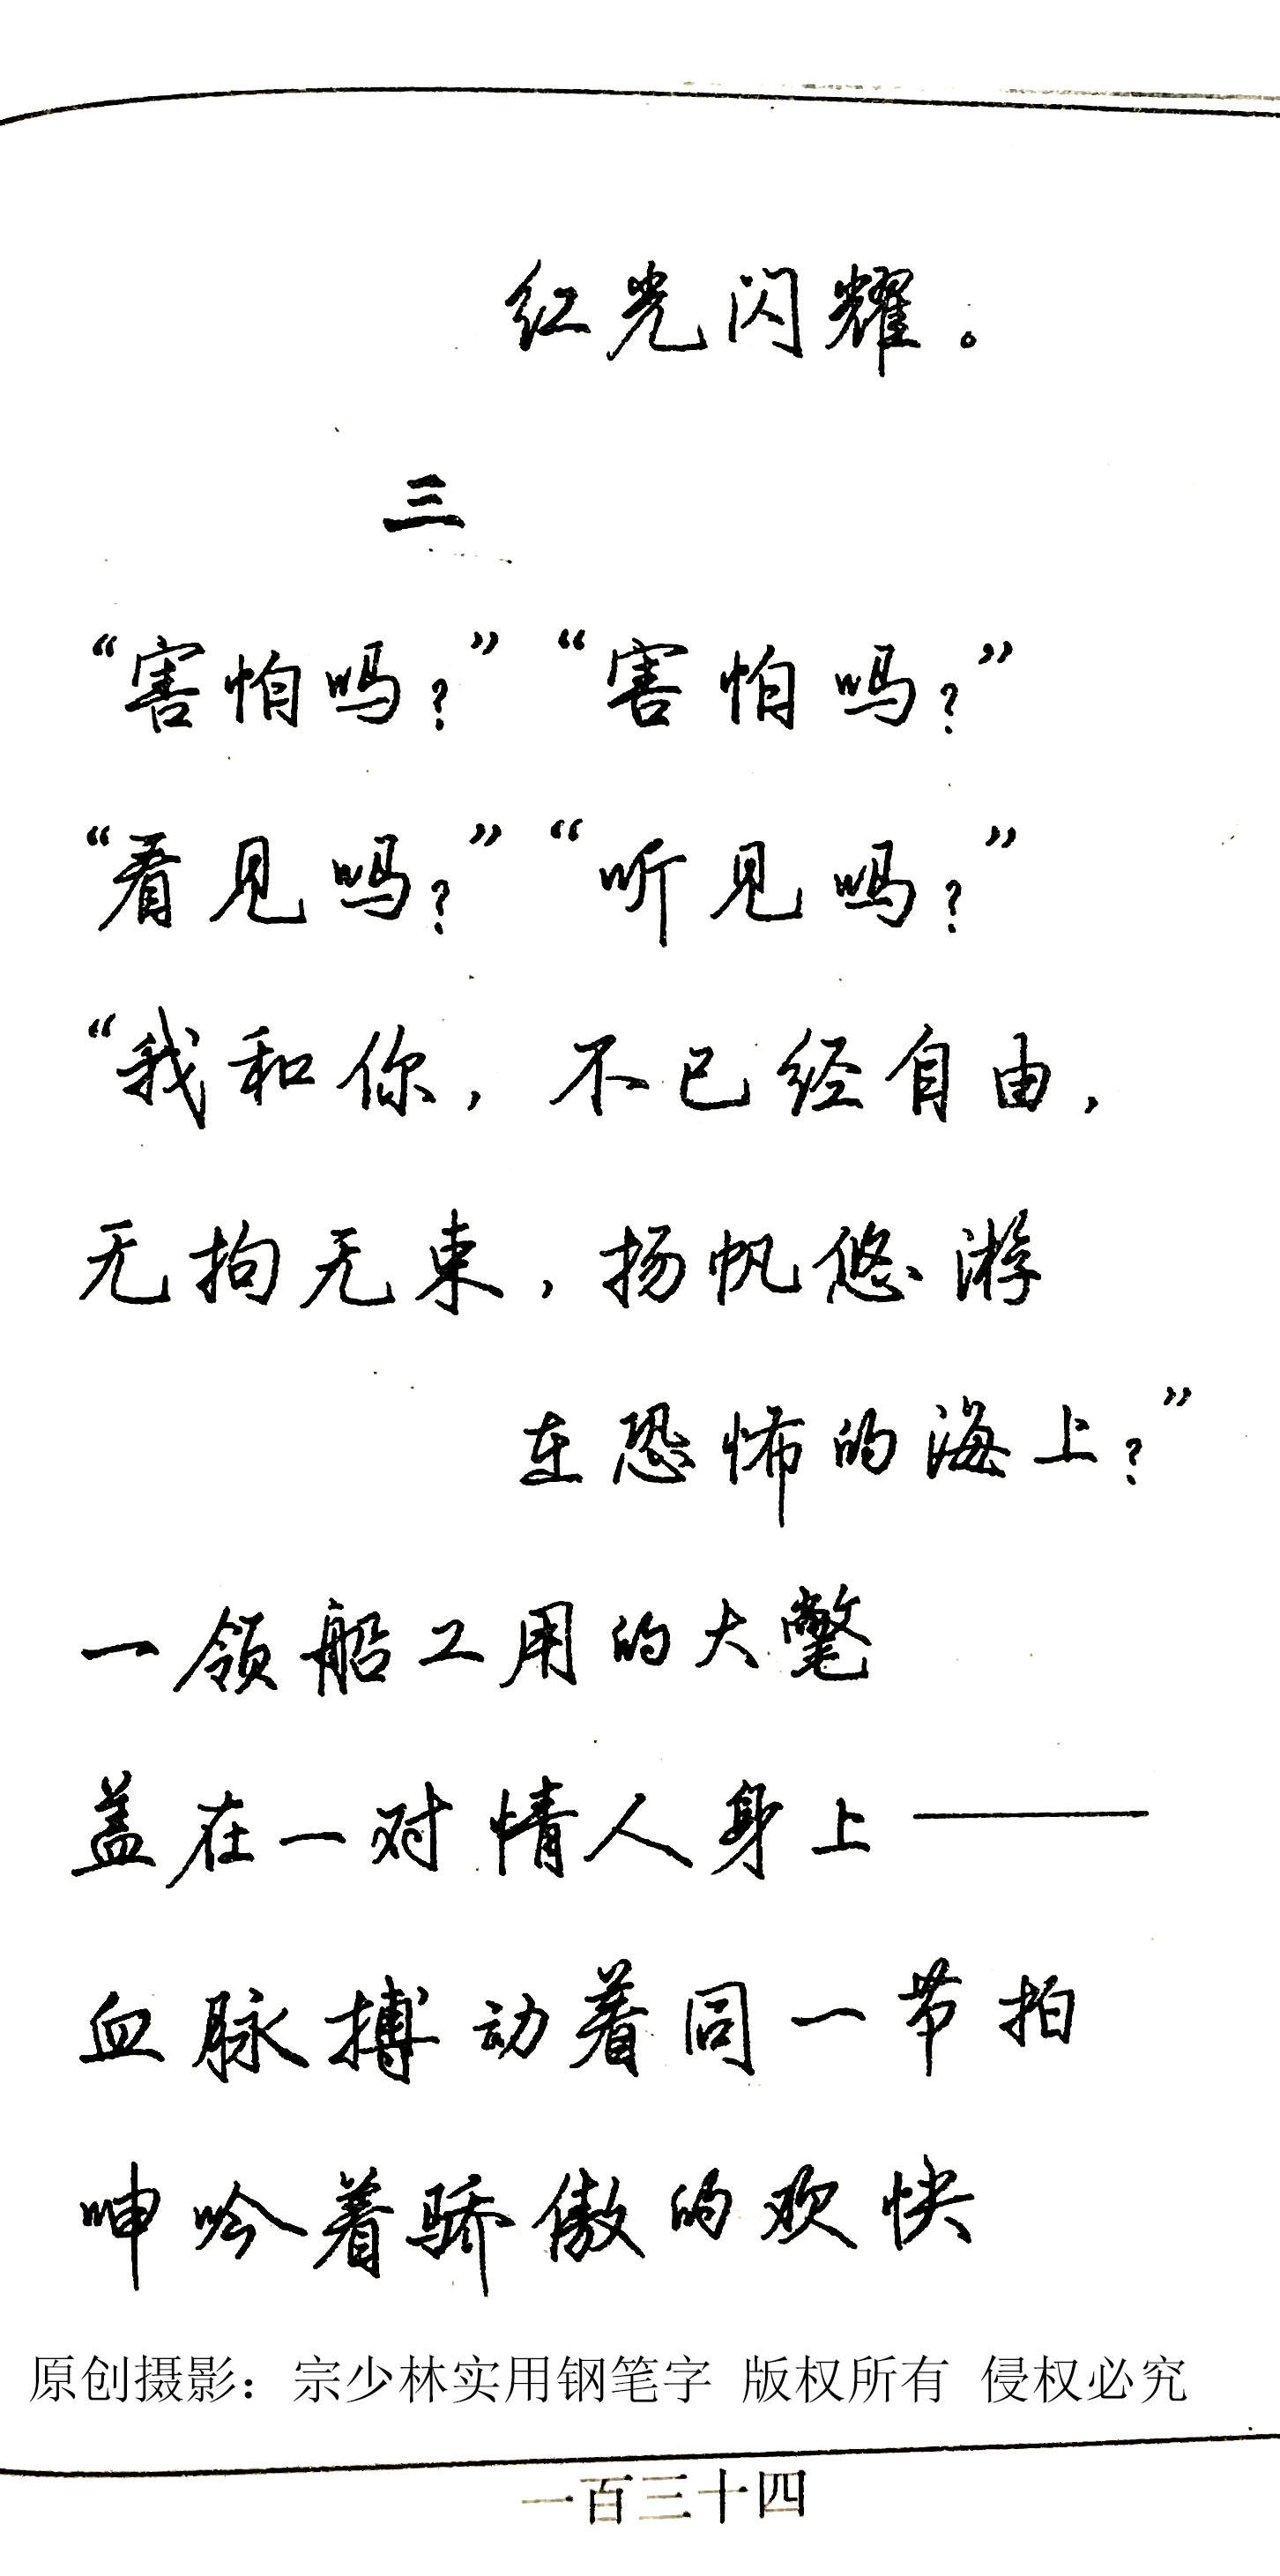 红光闪耀。
三
“害怕吗？”“害怕吗？”
“看见吗？”“听见吗？”
“我和你，不已经自由，
无拘无束，扬帆悠游
在恐怖的海上？”
一领船工用的大氅
盖在一对情人身上——
血脉搏动着同一节拍
呻吟着骄傲的欢快
原创摄影：宗少林实用钢笔字 版权所有 侵权必究
一百三十四